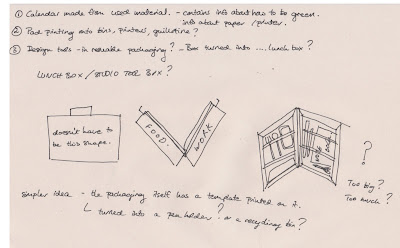 ① Calendar made from used material. - contains info about how to be green.
info about paper / printer.
② Pad printing onto bins, printers, guillotine?
③ Design tools - in reusable packaging? - Box turned into .... lunch box?
LUNCH BOX / STUDIO TOOL BOX?
doesn't have to
be this shape.
FOOD.
WORK
?
Too big?
Too much?
Simpler idea - the packaging itself has a template printed on it.
turned into a pen holder? or a recycling bin?